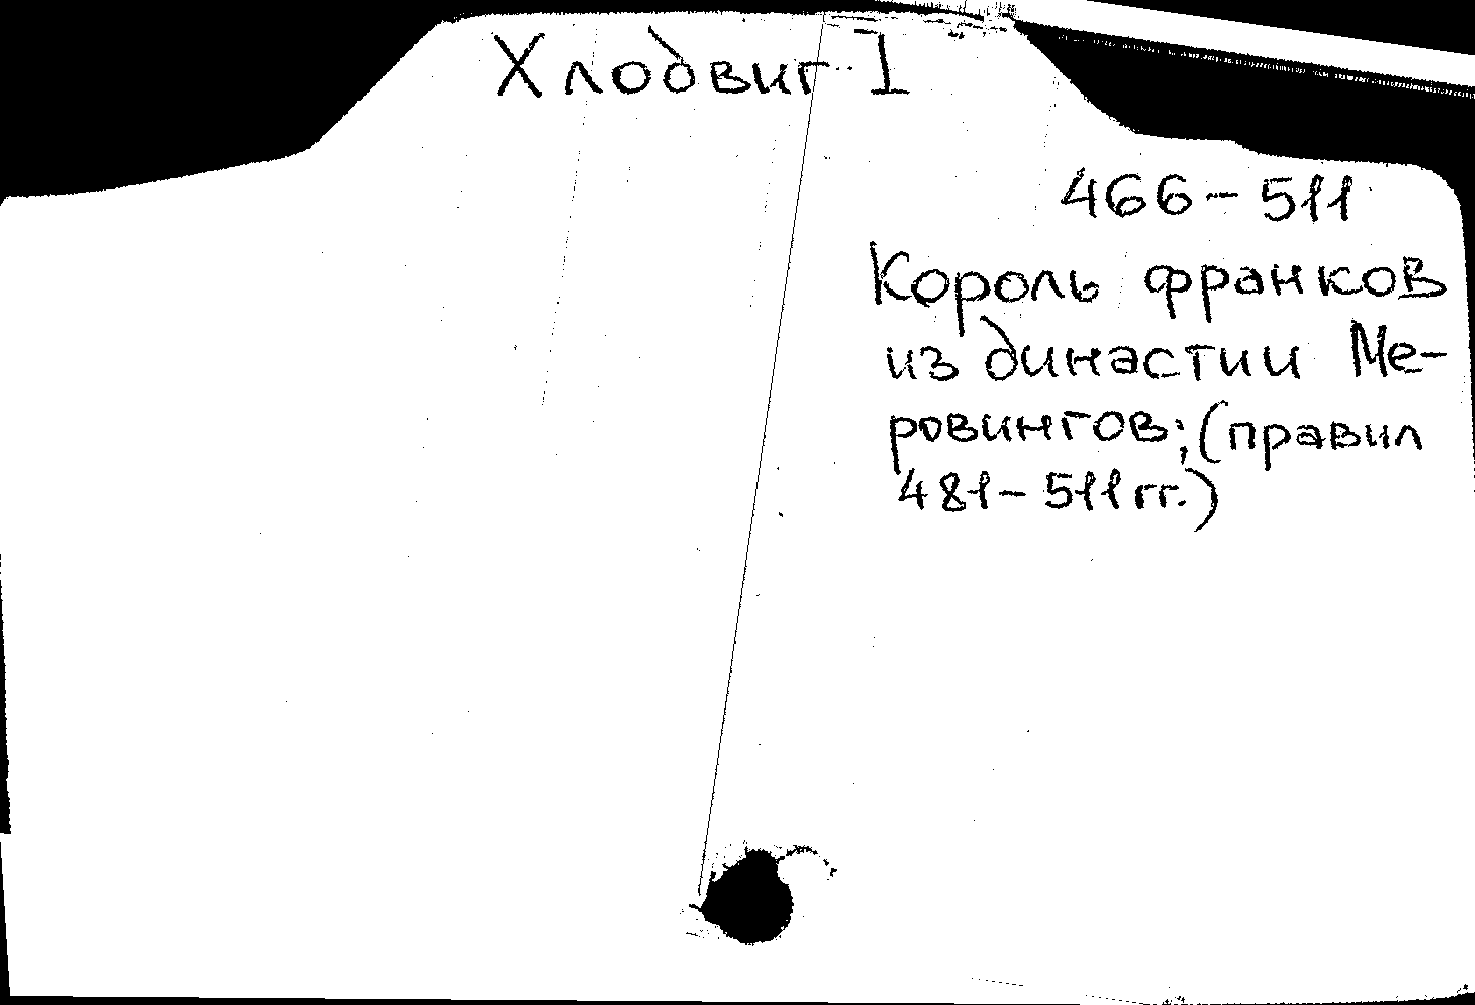 Хлодвиг 1
466-511
Король франков
из династии Ме-
ровингов; (правил
481-511 гг.)